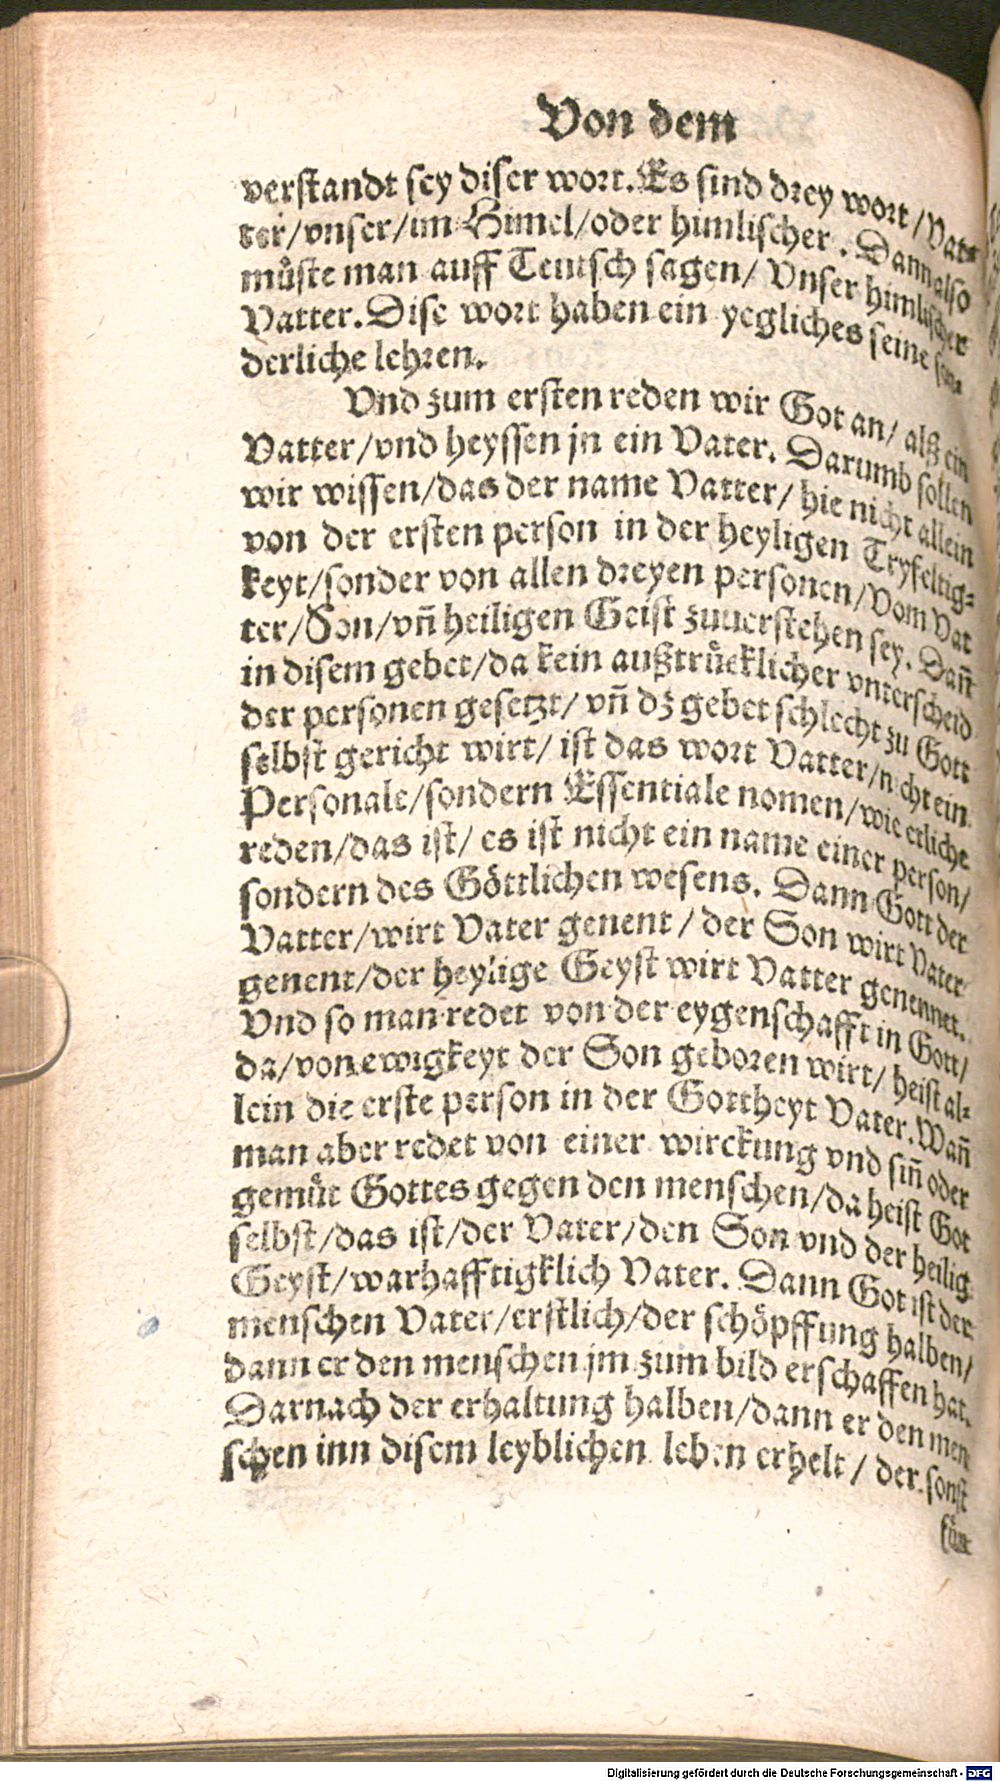 Von dem
verstandt sey diser wort. Es sind drey wort / Vat⸗
ter / vnser / im Himel / oder himlischer . Dann also
müste man auff Teutsch sagen / Vnser himlischer
Vatter. Dise wort haben ein yegliches seine son⸗
derliche lehren.
Vnd zum ersten reden wir Got an / alß ein
Vatter / vnd heyssen jn ein Vater. Darumb sollen
wir wissen / das der name Vatter / hie nicht allein
von der ersten person in der heyligen Tryfeltig⸗
keyt / sonder von allen dreyen personen / Vom Vat
ter / Son / vñ heiligen Geist zuuerstehen sey. Dañ
in disem gebet / da kein außtrücklicher vnterscheid
der personen gesetzt / vñ dz gebet schlecht zu Gott
selbst gericht wirt / ist das wort Vatter / nicht ein
Personale / sondern Essentiale nomen / wie etliche
reden / das ist / es ist nicht ein name einer person /
sondern des Göttlichen wesens. Dann Gott der
Vatter / wirt Vater genent / der Son wirt Vater
genent / der heylige Geyst wirt Vatter genennet.
Vnd so man redet von der eygenschafft in Gott /
da / von ewigkeyt der Son geboren wirt / heist al⸗
lein die erste person in der Gottheyt Vater. Wañ
man aber redet von einer wirckung vnd siñ oder
gemüt Gottes gegen den menschen / da heist Got
selbst / das ist / der Vater / den Son vnd der heilig
Geyst / warhafftigklich Vater. Dann Got ist der
menschen Vater / erstlich / der schöpffung halben /
dann er den menschen jm zum bild erschaffen hat.
Darnach der erhaltung halben / dann er den men
schen inn disem leyblichen leben erhelt / der sonst
Digitalisierung gefördert durch die Deutsche Forschungsgemeinschaft - DFG